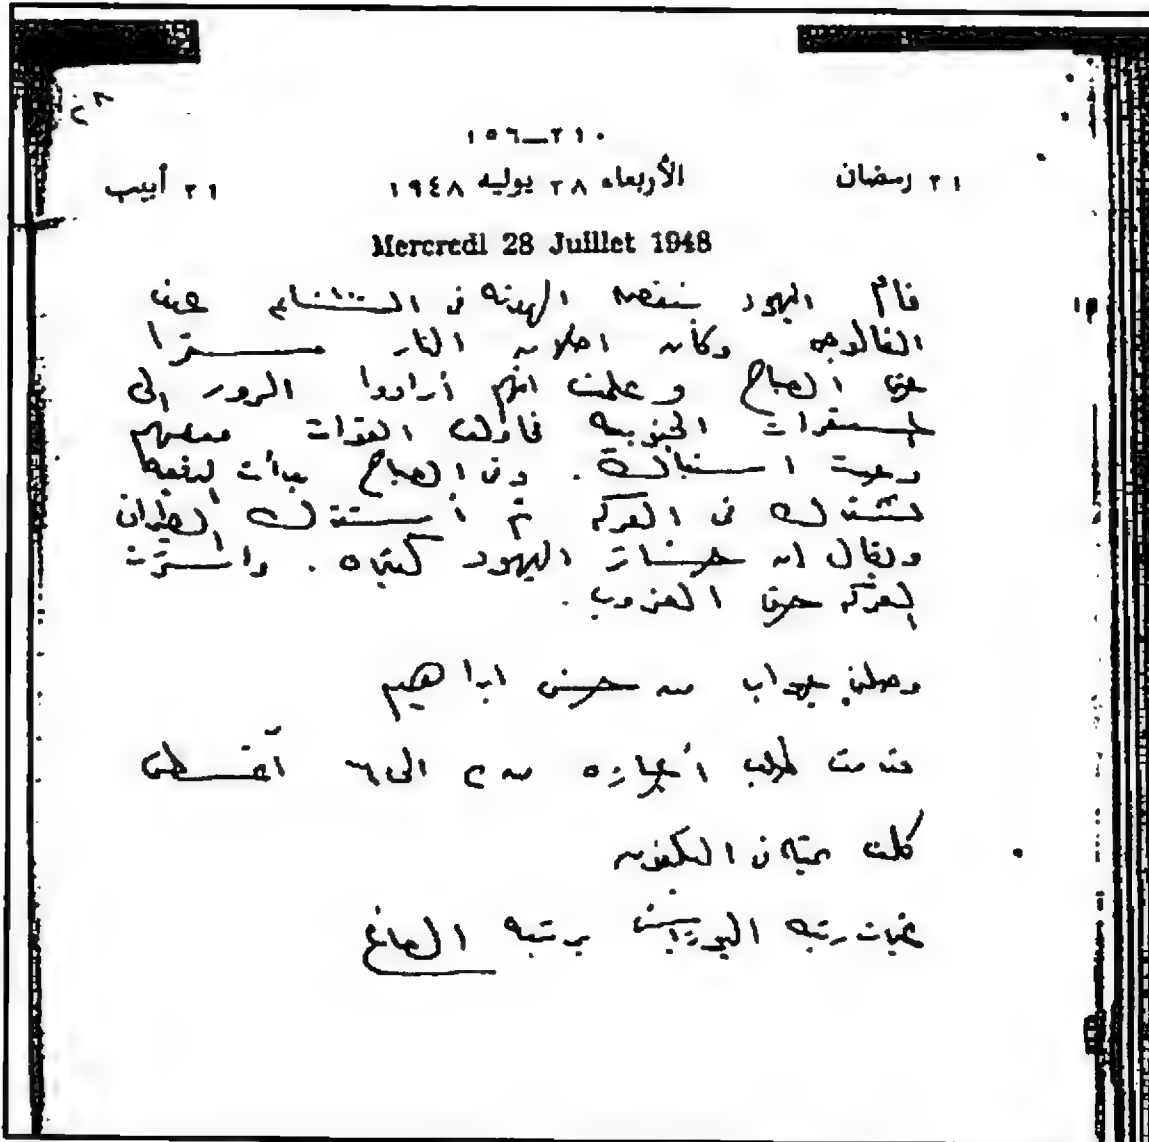 ٢٣
٢١٠-١٥٦
٢١ رمضان الأربعاء ٢٨ يوليه ١٩٤٨ ٢١ أبيب
Mercredi 28 Juillet 1948
قام اليهود بنقض الهدنه فى عند
الفالوجه وكان اطلاق النار مستمرا
حتى الصباح وعلمت انهم أرادوا المرور الى
المستعمرات الجنوبيه القوات
. وفى الصباح بدأت المدفعيه
تشترك فى المعركه ثم أشترك الطيران
ويقال ان خسائر اليهود كثيره . واستمرت
المعركه حتى الغروب .
وصلنى جواب من حسن ابراهيم
قدمت طلب أجازه من ٢ الى ٦ أغسطس
كلمت بالتلفون
رتبه اليوزباشى برتبه الصاغ